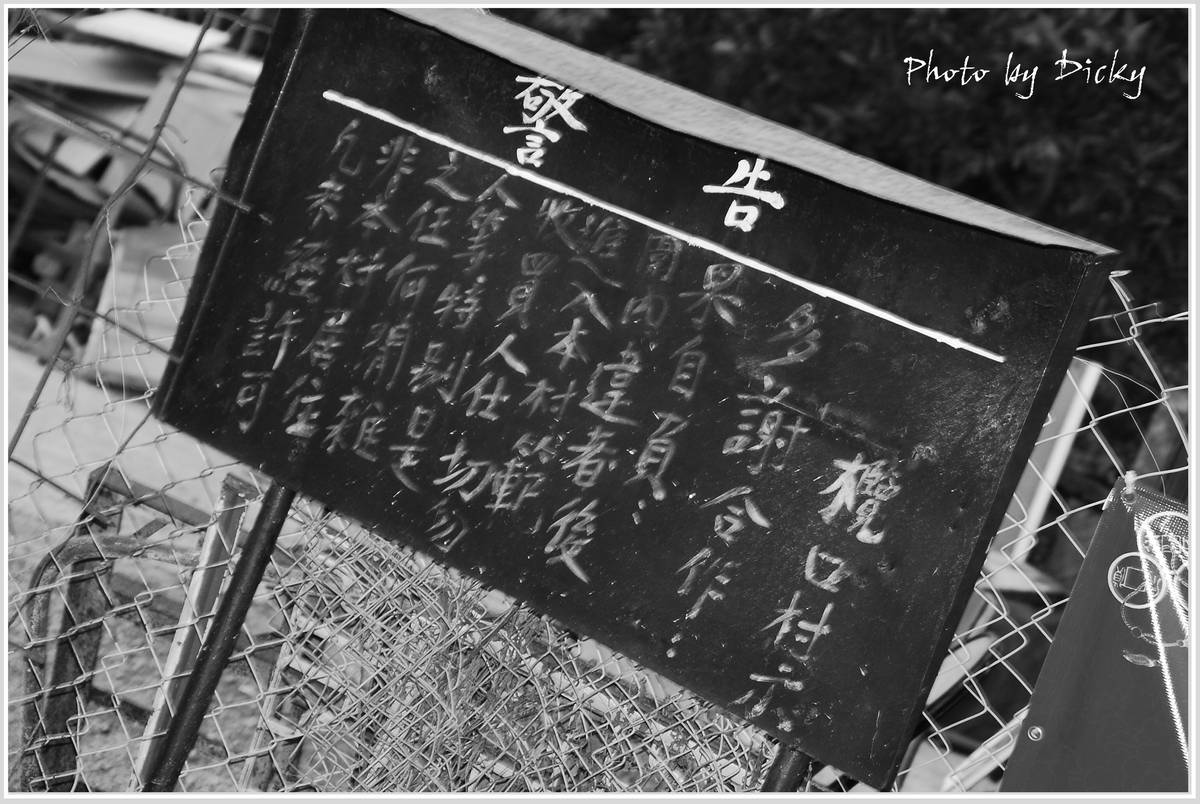 警告
凡未經許可
非本村居住
之任何閒雜
人等特別是
收買人仕切勿
進入本村範
圍內違者後
果自負：
多謝合作：
欖口村示
Photo by Dicky